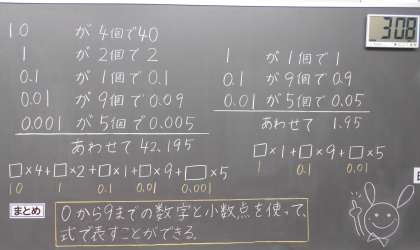 10 が4個で40
1 が2個で2
0.1 が1個で0.1
0.01 が9個で0.09
0.001 が5個で0.005
あわせて 42.195
□×4+□×2+□×1+□×9+□×5
10 1 0.1 0.01 0.001
308
1 が1個で1
0.1 が9個で0.9
0.01 が5個で0.05
あわせて 1.95
□×1+□×9+□×5
1 0.1 0.01
まとめ
0から9までの数字と小数点を使って、
式で表すことができる。